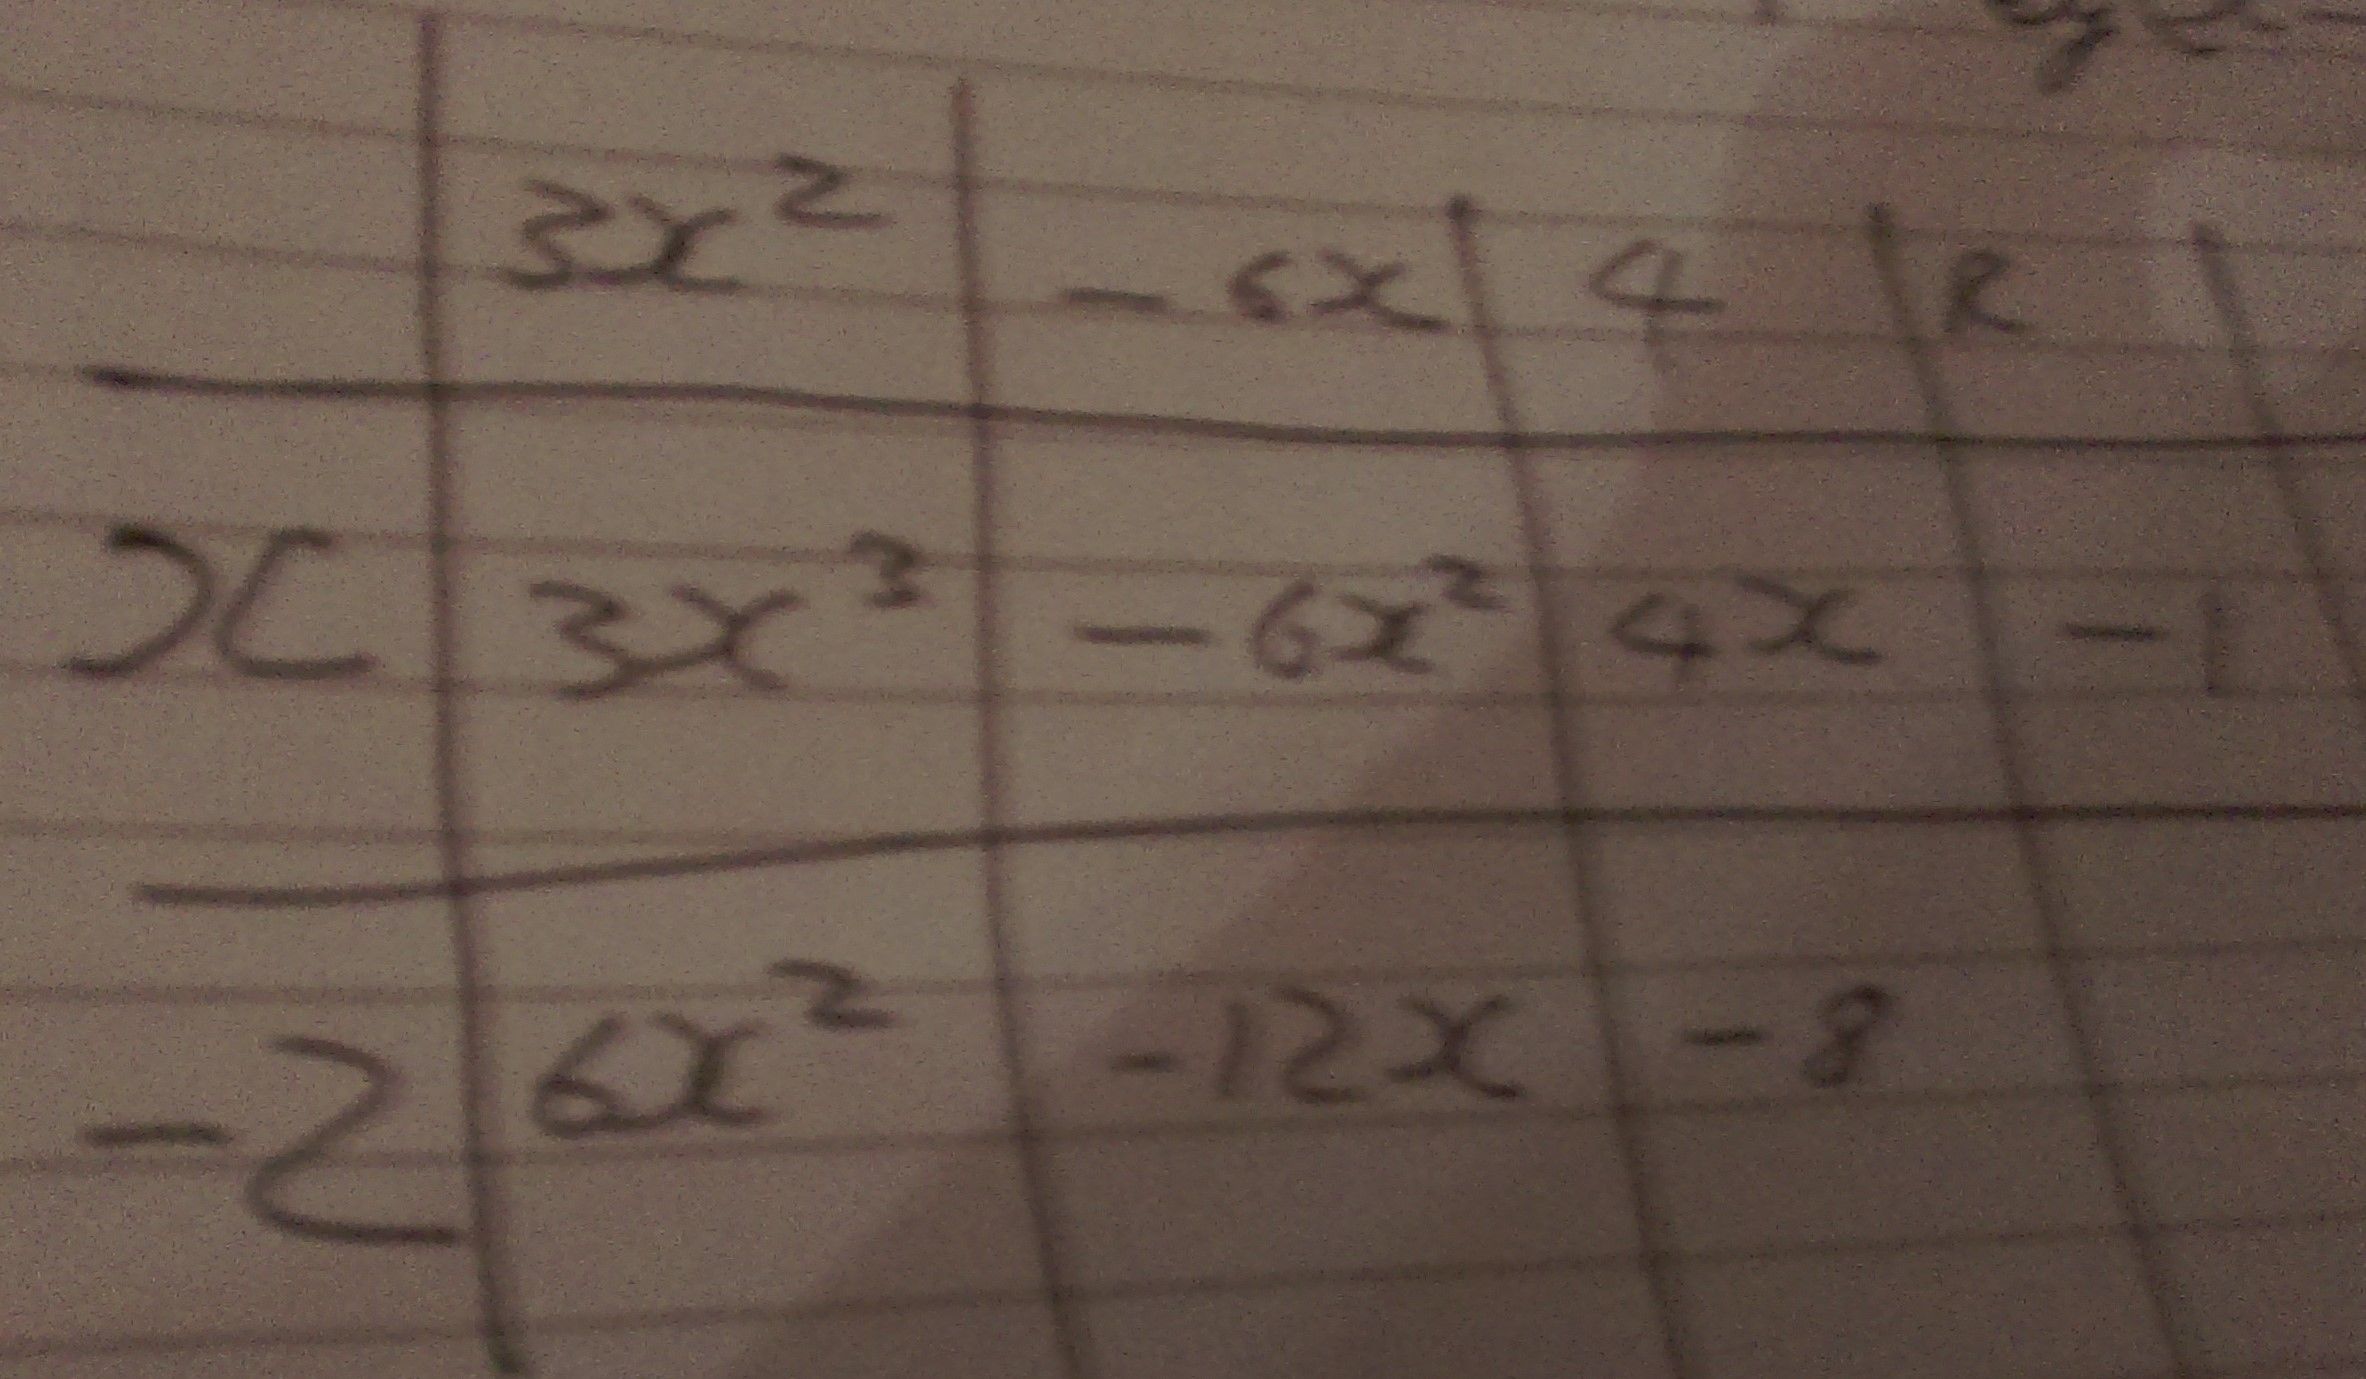 3x² -6x 4 R
x 3x³ -6x² 4x -1
-2 6x² -12x -8